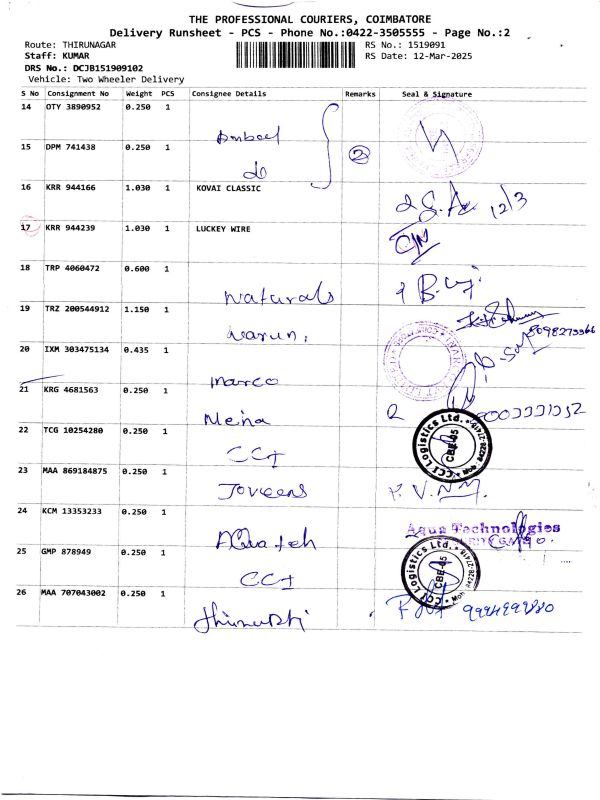 THE PROFESSIONAL COURIERS, COIMBATORE
Delivery Runsheet - PCS - Phone No.:0422-3505555 - Page No.:2
Route: THIRUNAGAR RS No.: 1519091
Staff: KUMAR RS Date: 12-Mar-2025
DRS No.: DCJB151909102
Vehicle: Two Wheeler Delivery
S No Consignment No Weight PCS Consignee Details Remarks Seal & Signature
14 OTY 3890952 0.250 1
15 DPM 741438 0.250 1 do 2
16 KRR 944166 1.030 1 KOVAI CLASSIC 12/3
17 KRR 944239 1.030 1 LUCKEY WIRE
18 TRP 4060472 0.600 1 Naturals
19 TRZ 200544912 1.150 1 Varun,
20 IXM 303475134 0.435 1 Marco
21 KRG 4681563 0.250 1 Meha
22 TCG 10254280 0.250 1 CCI CCI Logistics Ltd. CBE-05
23 MAA 869184875 0.250 1
24 KCM 13353233 0.250 1 Aqua Technologies
25 GMP 878949 0.250 1 CCI CCI Logistics Ltd. CBE-05
26 MAA 707043002 0.250 1